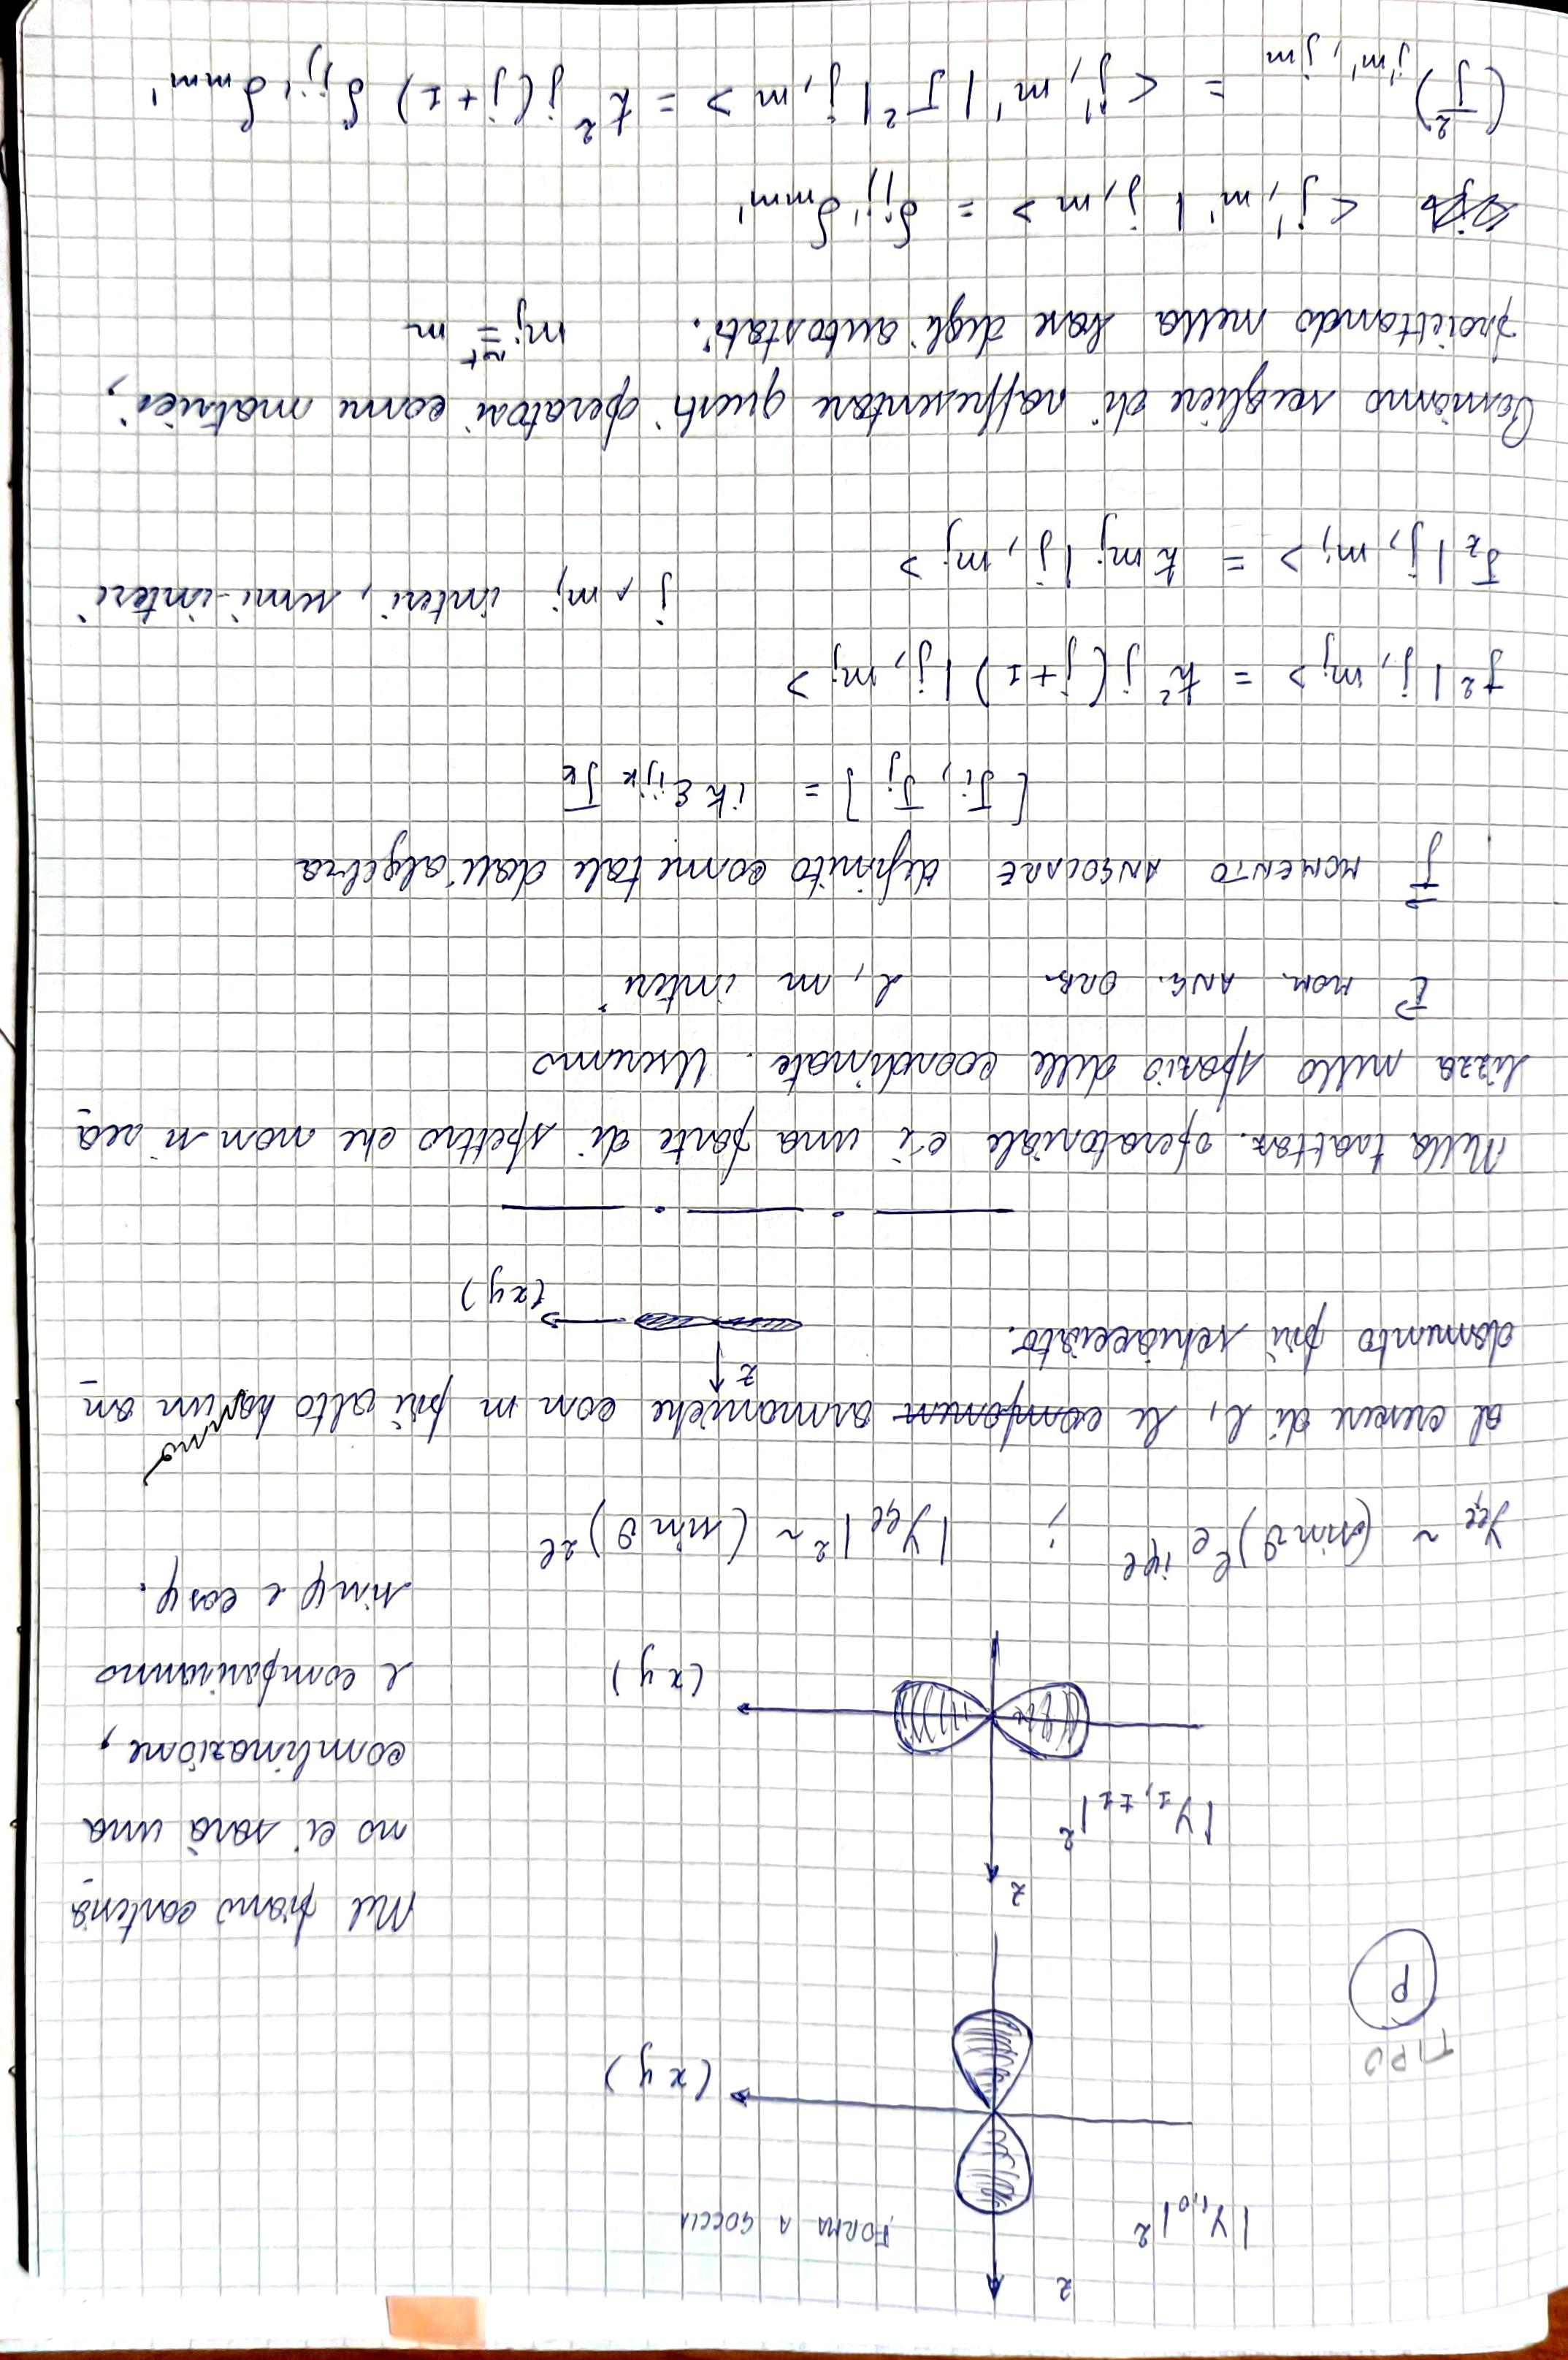 z
|Y₁,₀|² FORMA A GOCCIA
(xy)
TIPO
P
z
|Y₁,±₁|²
(xy)
Nel piano conterra̲
no ci sarà una
combinazione,
e compariranno
sinφ e cosφ.
Yₗₗ ~ (sinϑ)ˡ e^{iφl} ; |Yₗₗ|² ~ (sinϑ)^{2l}
al crescere di l, le armoniche con m più alto hanno un an̲
damento più schiacciato.
z
(xy)
Nella trattaz. operatoriale c'è una parte di spettro che non si rea̲
lizza nello spazio delle coordinate. Useremo
L⃗ MOM. ANG. ORB. l, m interi
J⃗ MOMENTO ANGOLARE definito come tale dall'algebra
[Jᵢ, Jⱼ] = iħ εᵢⱼₖ Jₖ
J² |j, mⱼ> = ħ² j(j+1) |j, mⱼ>
J_z |j, mⱼ> = ħ mⱼ |j, mⱼ>
j, mⱼ interi, semi-interi
Possiamo scegliere di rappresentare questi operatori come matrici,
proiettando nella base degli autostati. mⱼ ≡ m
<j', m' | j, m> = δⱼⱼ' δₘₘ'
(J²)_{j'm', jm} = <j', m' | J² | j, m> = ħ² j(j+1) δⱼⱼ' δₘₘ'